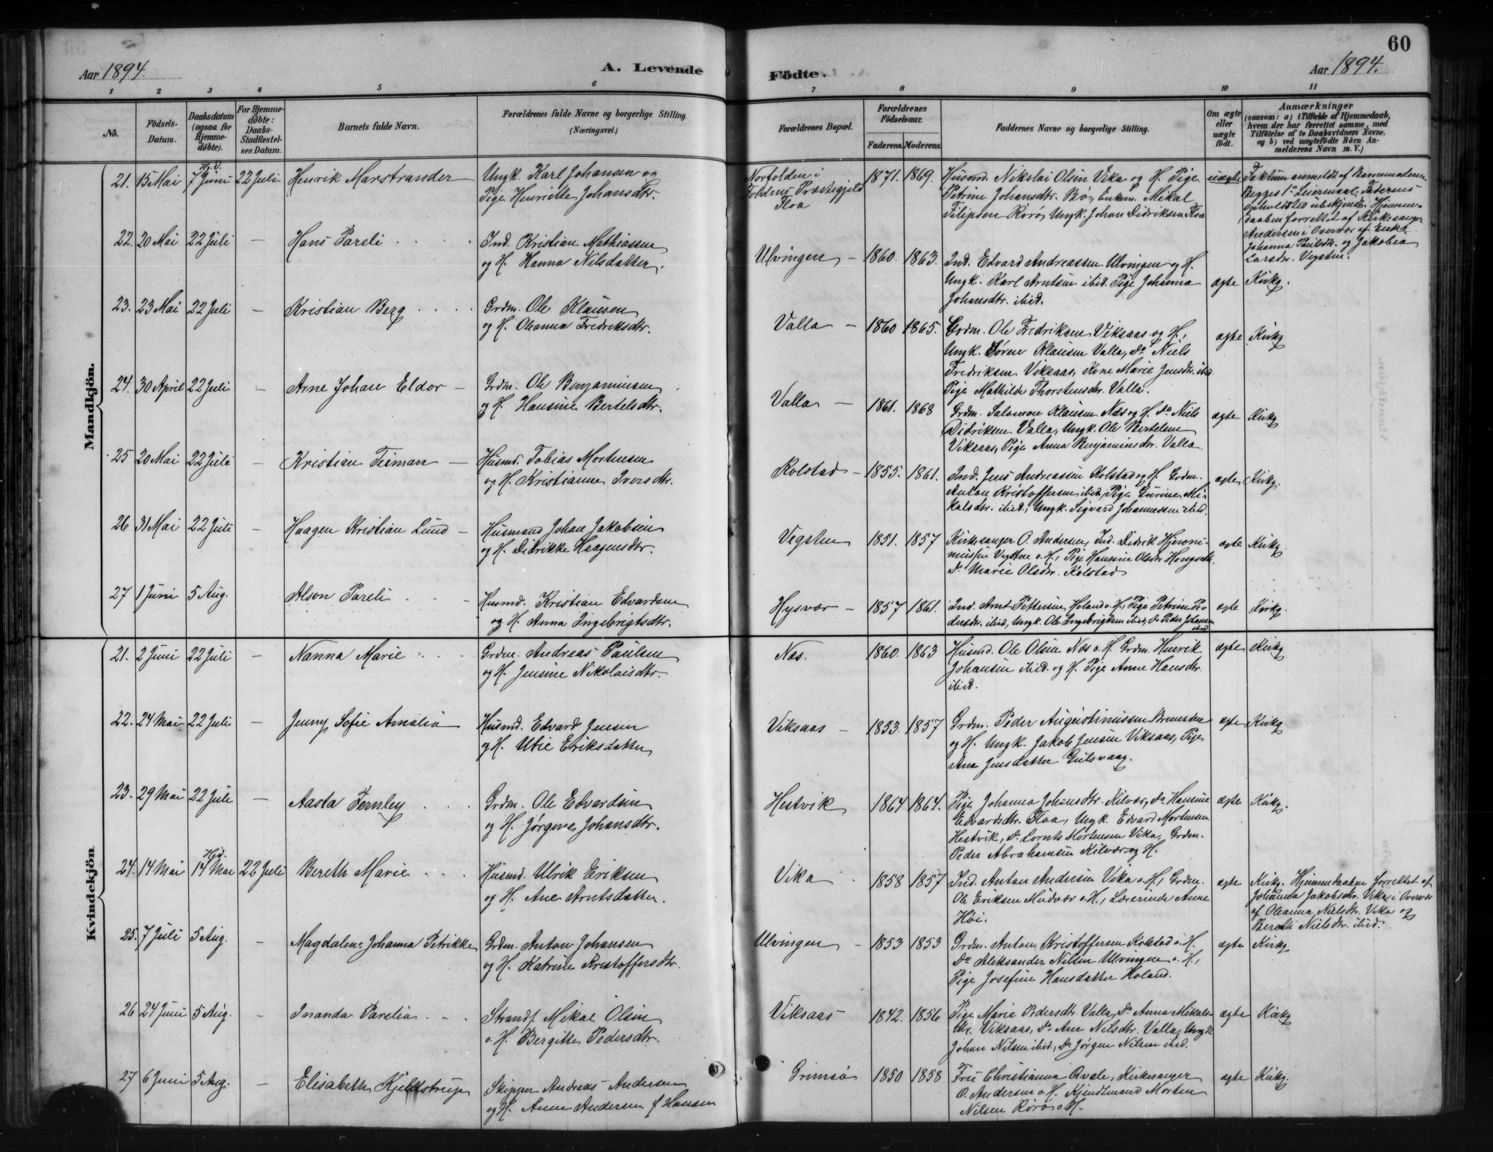 60
Aar 1894.
A. Levende
Fødte.
Aar 1894.
1 2 3 4 5 6 7 8 9 10 11
No.
Fødsels-
Datum.
Daabsdatum
(ogsaa for
Hjemme-
døbte).
For Hjemme-
døbte:
Daabs-
Stadfæstel-
ses Datum.
Barnets fulde Navn.
Forældrenes fulde Navne og borgerlige Stilling.
(Næringsvei.)
Forældrenes Bopæl.
Forældrenes
Fødselsaar.
Faderens. Moderens.
Faddernes Navne og borgerlige Stilling.
Om ægte
eller
uægte
født.
Anmærkninger
(saasom: a) i Tilfælde af Hjemmedaab,
hvem der har forrettet samme, med
Tilføielse af to Daabsvidners Navne,
og b) ved uægtefødte Børn An-
melderens Navn m. V.)
Mandkjøn.
21. 15 Mai 7 Juni 22 Juli Henrik Marstrander
Ungk. Karl Johansen og
Pige Henriette Johansdtr.
Norfolden i
Foldens Præstegjeld
Floa
1871. 1869.
Husmd. Nikolai Olsen Vika og H. Pige
Petrine Johansdtr. Bø, Enkem. Mikal
Filipsen Rorø, Ungk. Johan Didriksen Floa
uægte
Faktum anmeldt af Barnemoderen
Begges 1ste Leiermaal. Faderens
Opholdssted ubekjendt. Hjemme-
daaben forrettet af Kirkesanger
Andersen i Overvær af Enke
Johanna Paulsdtr. og Jakobea
Larsdtr. Vegsten.
22. 20 Mai 22 Juli — Hans Pareli
Ind. Kristian Mathiassen
og H. Hanna Nilsdatter.
Ulvingen — 1860. 1863.
Ind. Edvard Andreassen Ulvingen og H.
Ungk. Karl Arntsen ibid. Pige Johanna
Johansdtr. ibid.
ægte Kirkg.
23. 23 Mai 22 Juli — Kristian Berg
Grdm. Ole Klausen
og H. Oleanna Fredriksdtr.
Valla — 1860 1865.
Grdm. Ole Fredriksen Viksaas og H.
Ungk. Søren Klausen Valla, Do Niels
Fredriksen Viksaas, Kone Marie Jensdtr. ibid
Pige Mathilde Thorstensdtr. Valla.
ægte Kirkg
24. 30 April 22 Juli — Arne Johan Eldor —
Grdm. Ole Benjaminsen
og H. Hansine Bertelsdtr.
Valla — 1861. 1868
Grdm. Salomon Klausen Næs og H. Do Niels
Didriksen Valla, Ungk. Ole Bertelsen
Viksaas, Pige Anna Benjaminsdtr. Valla
ægte Kirkg
25 20 Mai 22 Juli — Kristian Feiman —
Husmd. Tobias Mortensen
og H. Kristianne Iversdtr.
Rolstad — 1855. 1861.
Ind. Jens Andreassen Rolstad og H. Grdm.
Anton Kristoffersen ibid. Pige Gurine Mi-
kalsdtr. ibid, Ungk. Sigvard Johannessen ibid.
ægte Kirkg.
26 31 Mai 22 Juli — Haagen Kristian Lund —
Husmand Johan Jakobsen
og H. Didrikke Haagensdtr.
Vegsten — 1851. 1857
Kirkesanger O. Andersen, Ind. Didrik Hieroni-
mussen Vegsten o. H., Pige Hansine Olsdtr.
Do Marie Olsdtr. Rolstad
ægte Kirkg.
27 1 Juni 5 Aug. Alson Pareli
Husmd. Kristian Edvardsen
og H. Anna Ingebrigtsdtr.
Hysvær — 1857 1861.
Ind. Arnt Pettersen, Holand o. H., Pige Petrine
ibid, Ungk. Ole Ingebrigtsen ibid, Do Peder Johansen
ibid
ægte Kirkg.
Kvindekjøn
21. 2 Juni 22 Juli — Nanna Marie
Grdm. Andreas Paulsen
og H. Jensine Nikolaisdtr.
Næs. 1860. 1863
Husmd. Ole Olsen Næs o. H. Grdm. Henrik
Johansen ibid. og H. Pige Anne Hansdtr.
ibid.
ægte Kirkg
22. 24 Mai 22 Juli — Jenny Sofie Amalia
Husmd. Edvard Jensen
og H. Utie Eriksdatter
Viksaas — 1853. 1857
Grdm. Peder Augustinussen
og H. Ungk. Jakob Jensen Viksaas, Pige
Ane Jensdatter Gulsvaag.
ægte Kirkg
23. 29 Mai 22 Juli — Aasta Fernley
Grdm. Ole Edvardsen
og H. Jørgine Johansdtr.
Hestvik 1864 1864.
Pige Johanna Johansdtr. Kilvær, Do Hansine
Edvardsdtr. Floa, Ungk. Edvard Mortensen
Hestvik, Do Lornts Mortensen Vika, Grdm.
Peder Abrahamsen Kilvær og H.
ægte Kirkg.
24. 14 Mai Hjd. 14 Mai 22 Juli Bereth Marie
Husmd. Ulrik Eriksen
og H. Ane Arntsdatter.
Vika 1858 1857
Ind. Anton Andersen Vika o. H., Grdm.
Ole Eriksen Hidvær o. H., Lærerinde Anne
Høi.
ægte Kirkg. Hjemmedaaben forrettet af
Johanna Jakobsdtr. Vika i Overvær
af Oleanna Nielsdtr. Vika og
Bereth Nielsdtr. ibid.
25. 7 Juli 5 Aug. — Magdalene Johanna Petrikke
Grdm. Anton Johansen
og H. Katrine Kristoffersdtr.
Ulvingen — 1853 1853
Grdm. Anton Kristoffersen Rolstad o. H.
Do Aleksander Nilsen Ulvingen o. H.,
Pige Josefine Hansdatter Holand.
ægte Kirkg
26 24 Juni 5 Aug. — Inanda Parelia
Strands. Mikal Olsen
o. H. Bergitte Pedersdtr.
Viksaas — 1842. 1856
Pige Marie Pedersdtr. Valla, Do Anna Mikals-
dtr. Viksaas, Do Ane Nilsdtr. Valla, Ungk
Johan Nilsen ibid, Do Jørgen Nilsen ibid.
ægte Kirkg
27 6 Juni 5 Aug. — Elisabeth Kjeldstrup
Skipper Andreas Andersen
og H. Anne Andersen f. Hansen
Grimsø 1850 1858
Fru Christianna Qvale, Kirkesanger
O. Andersen o. H. Kjendtmand Morten
Nilsen Rorø o. H.
ægte Kirkg